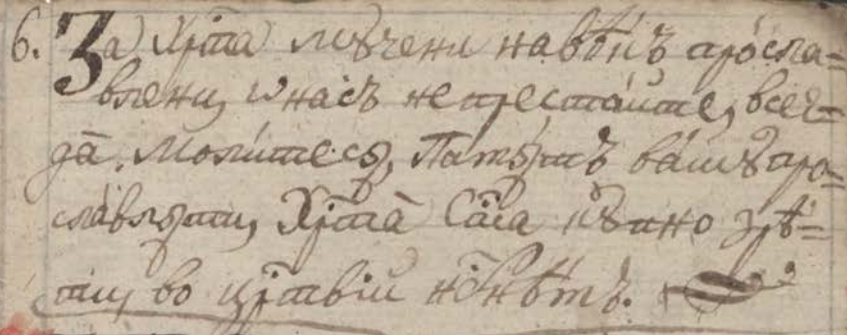 6. За Хрⷭ҇та мꙋчени навѣкъ просла=
влени, ѡ насъ непрестайте, всег=
да молитеся, Память вашꙋ про=
славляти, Хрⷭ҇та Сп҃са кꙋпно зрѣ=
ти, во црⷭ҇твіи нбⷭ҇нѣмъ.